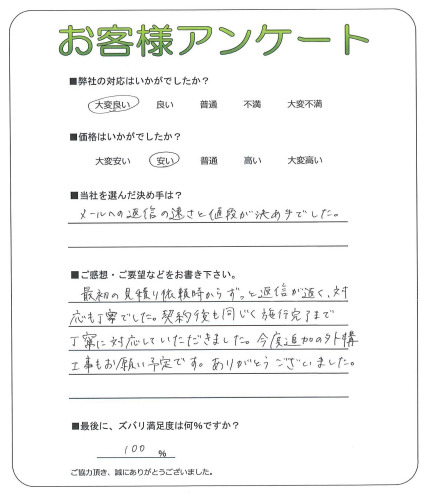 お客様アンケート
■弊社の対応はいかがでしたか？
大変良い 良い 普通 不満 大変不満
■価格はいかがでしたか？
大変安い 安い 普通 高い 大変高い
■当社を選んだ決め手は？
メールへの返信の速さと値段が決め手でした。
■ご感想・ご要望などをお書き下さい。
最初の見積り依頼時からずっと返信が速く、対
応も丁寧でした。契約後も同じく施行完了まで
丁寧に対応していただきました。今度追加の外構
工事もお願い予定です。ありがとうございました。
■最後に、ズバリ満足度は何％ですか？
100 %
ご協力頂き、誠にありがとうございました。